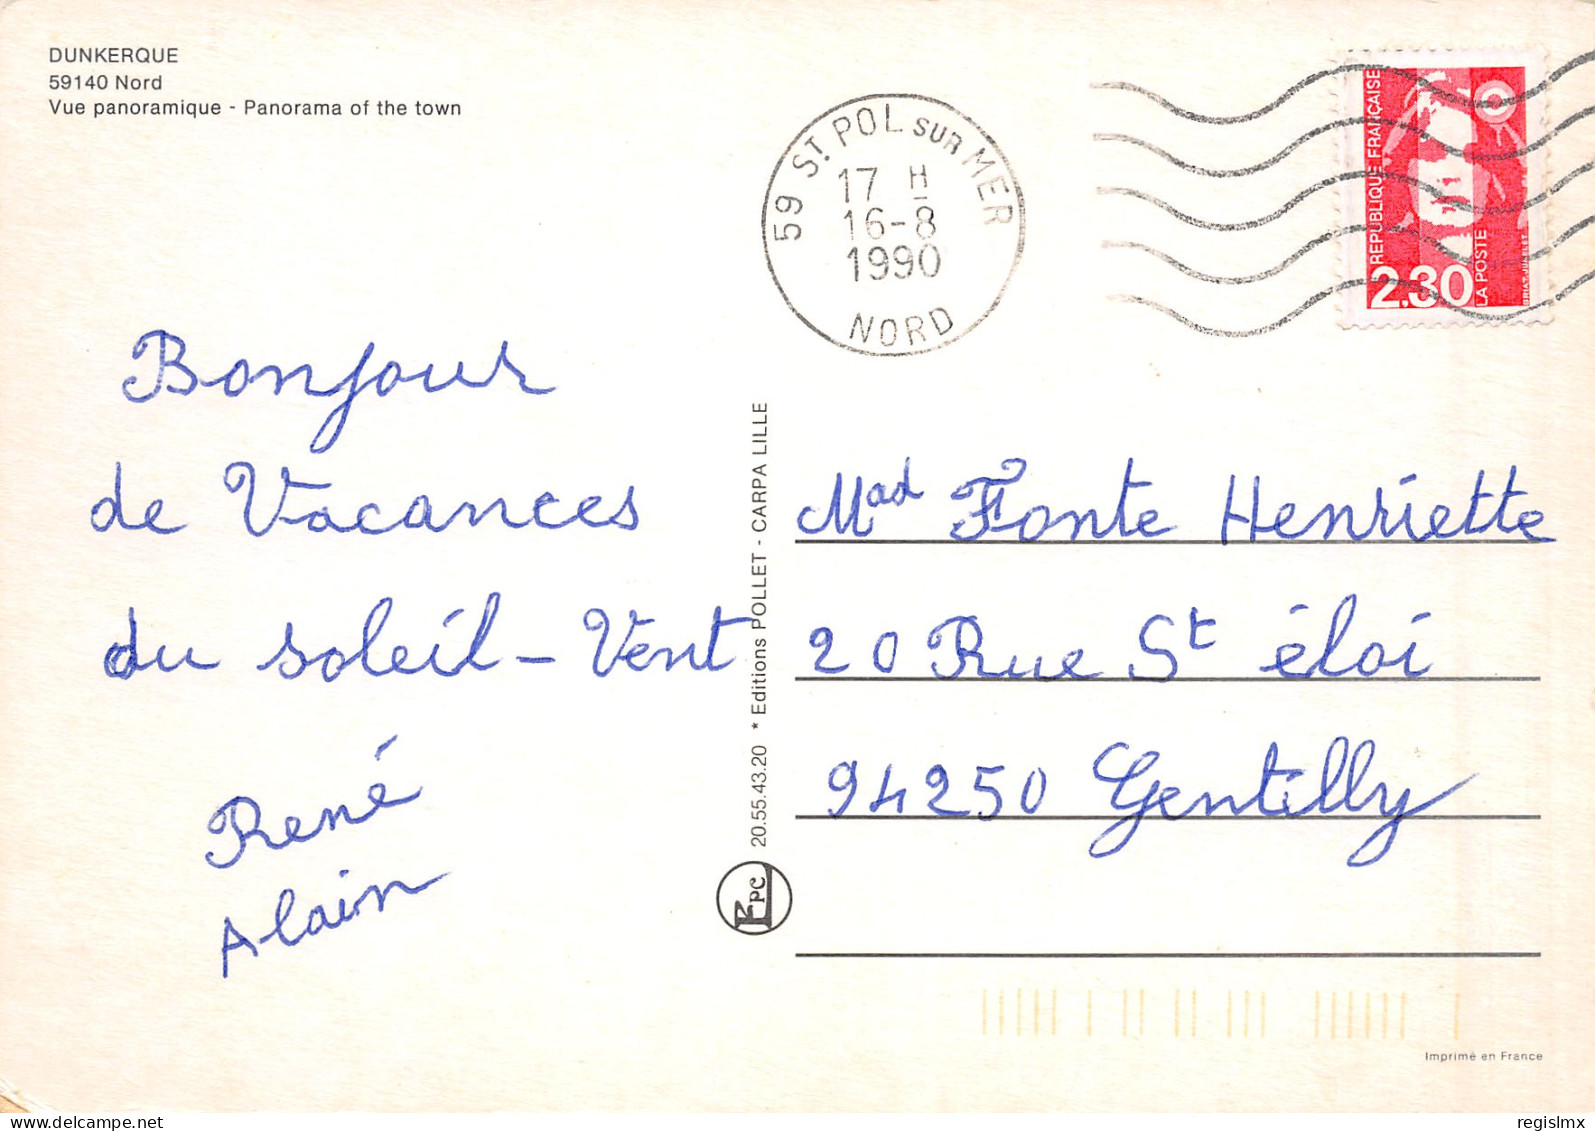 DUNKERQUE
59140 Nord
Vue panoramique - Panorama of the town
59 St. POL SUR MER
17 H
16-8
1990
NORD
REPUBLIQUE FRANÇAISE
2,30
LA POSTE
Bonjour
de Vacances
du soleil - Vent
René
Alain
20.55.43.20 * Editions POLLET - CARPA LILLE
PC
Mad Fonte Henriette
20 Rue St éloi
94250 Gentilly
Imprimé en France
delcampe.net
regislmx